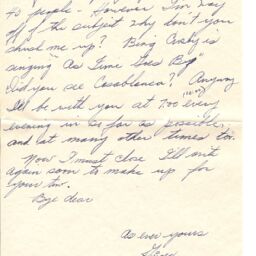 to people - However I'm way
off of the subject why don't you
check me up? Bing Crosby is
singing "As Time Goes By"
Did you see Casablanca? Anyway
I'll be with you at 7:00 every
evening in so far as possible,
and at many other times too.
Now I must close I'll write
again soon to make up for
your two.
Bye dear
As ever yours